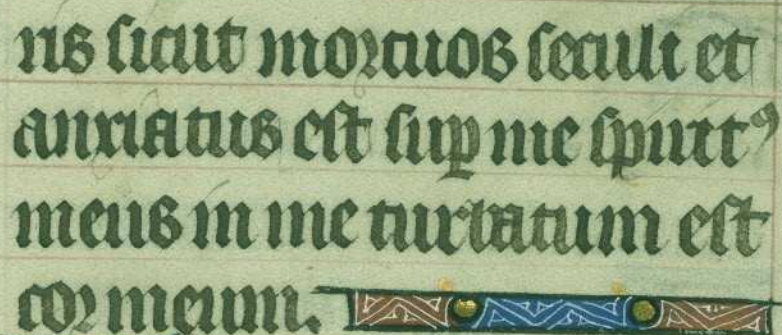 ris sicut mortuos seculi et
anxiatus est sup me spirit⁹
meus in me turbatum est
cor meum.